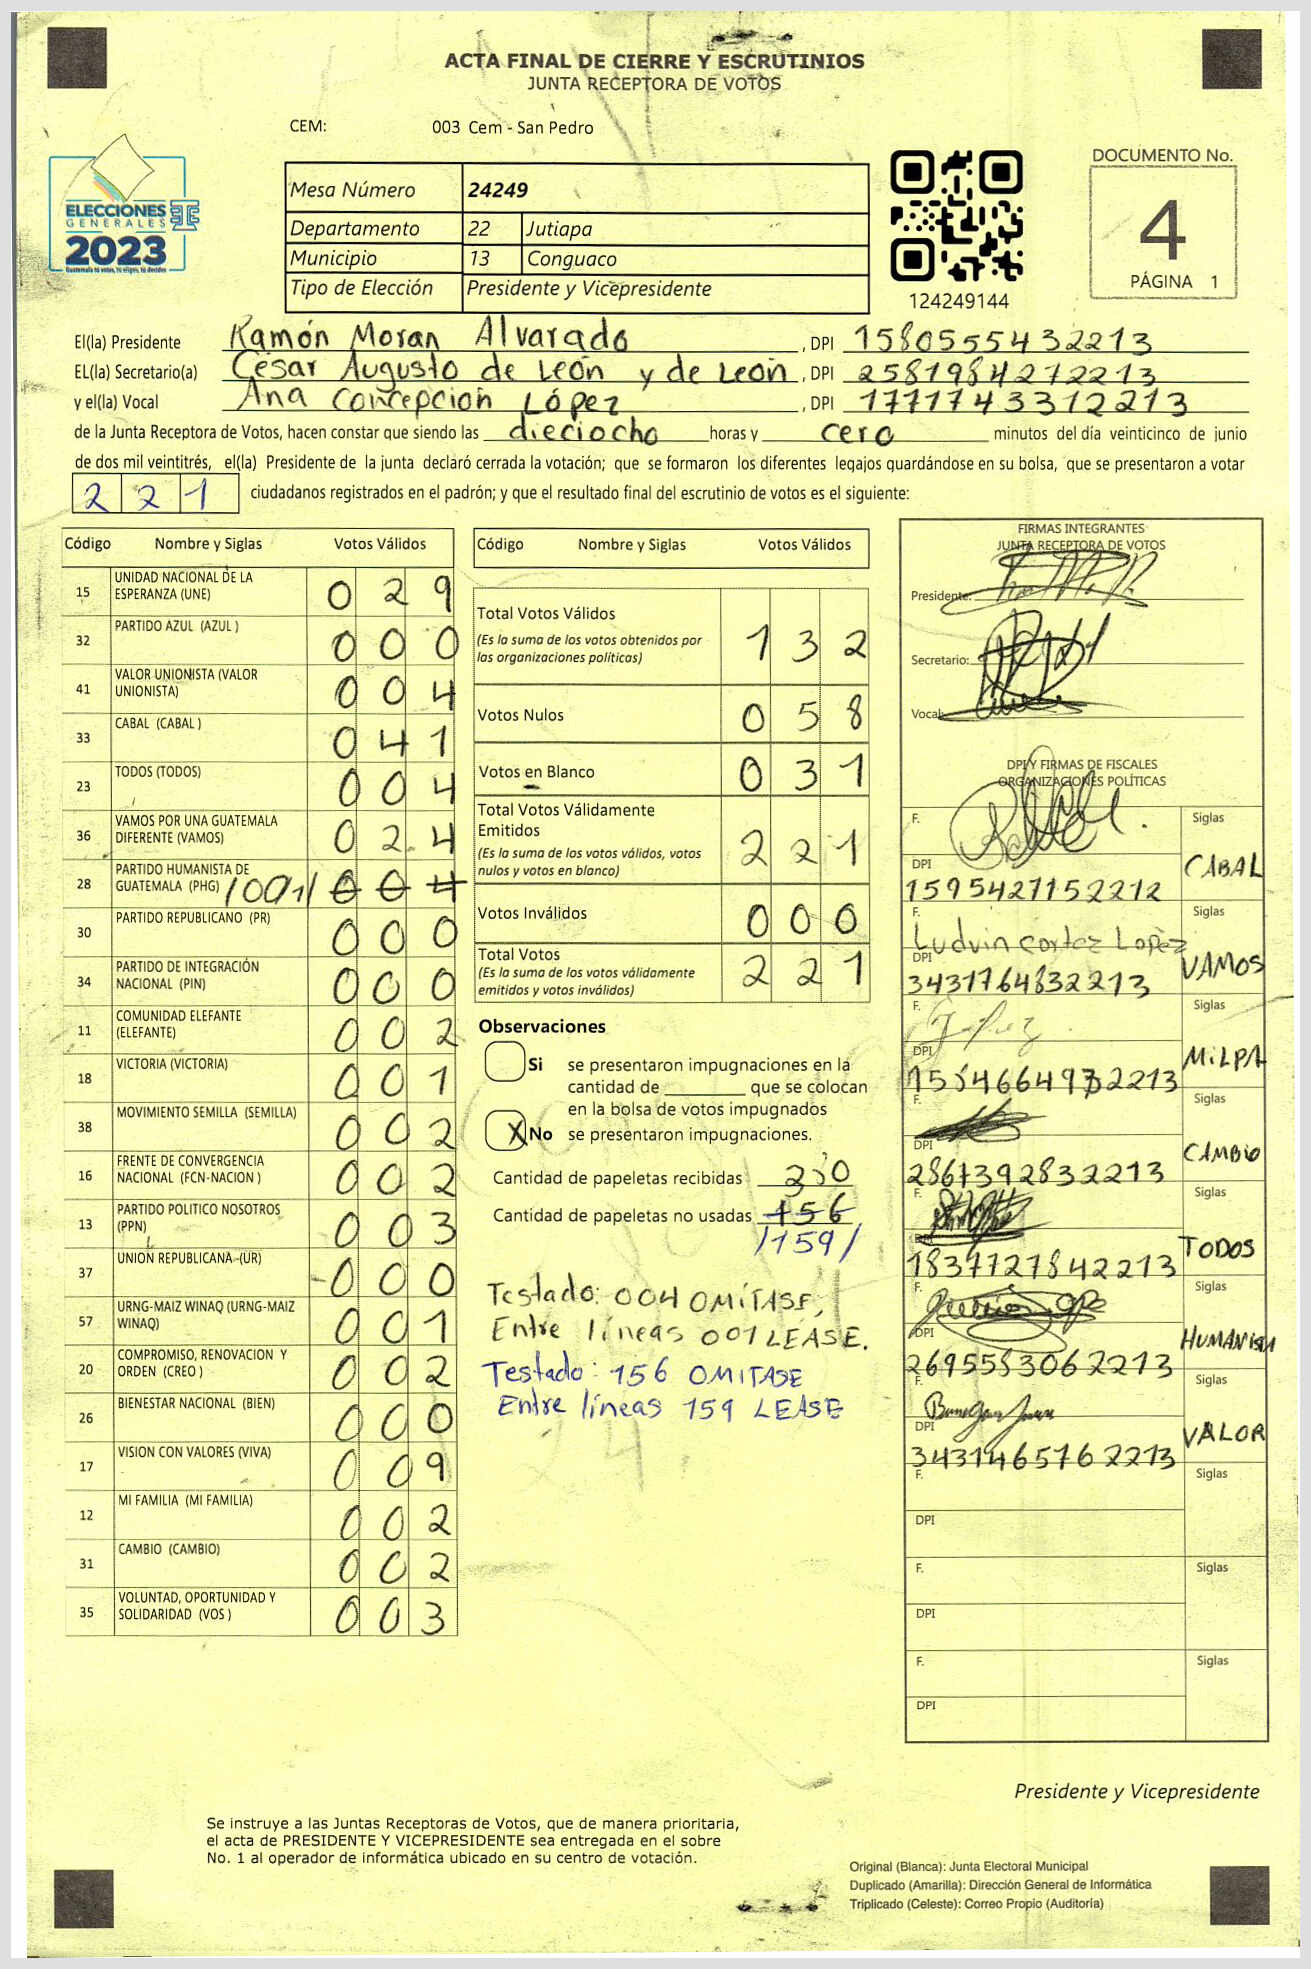 ACTA FINAL DE CIERRE Y ESCRUTINIOS
JUNTA RECEPTORA DE VOTOS
CEM: 003 Cem - San Pedro
ELECCIONES
GENERALES
2023
Guatemala tú votas, tú eliges, tú decides
Mesa Número 24249
Departamento 22 Jutiapa
Municipio 13 Conguaco
Tipo de Elección Presidente y Vicepresidente
124249144
DOCUMENTO No.
4
PÁGINA 1
El(la) Presidente Ramón Moran Alvarado, DPI 1580555432213
EL(la) Secretario(a) César Augusto de León y de León, DPI 2581984272213
y el(la) Vocal Ana Concepción López, DPI 1771743312213
de la Junta Receptora de Votos, hacen constar que siendo las dieciocho horas y cero minutos del día veinticinco de junio
de dos mil veintitrés, el(la) Presidente de la junta declaró cerrada la votación; que se formaron los diferentes legajos guardándose en su bolsa, que se presentaron a votar
221 ciudadanos registrados en el padrón; y que el resultado final del escrutinio de votos es el siguiente:
Código Nombre y Siglas Votos Válidos
15 UNIDAD NACIONAL DE LA ESPERANZA (UNE) 029
32 PARTIDO AZUL (AZUL ) 000
41 VALOR UNIONISTA (VALOR UNIONISTA) 004
33 CABAL (CABAL ) 041
23 TODOS (TODOS) 004
36 VAMOS POR UNA GUATEMALA DIFERENTE (VAMOS) 024
28 PARTIDO HUMANISTA DE GUATEMALA (PHG) /001/ 004
30 PARTIDO REPUBLICANO (PR) 000
34 PARTIDO DE INTEGRACIÓN NACIONAL (PIN) 000
11 COMUNIDAD ELEFANTE (ELEFANTE) 002
18 VICTORIA (VICTORIA) 001
38 MOVIMIENTO SEMILLA (SEMILLA) 002
16 FRENTE DE CONVERGENCIA NACIONAL (FCN-NACION ) 002
13 PARTIDO POLITICO NOSOTROS (PPN) 003
37 UNION REPUBLICANA (UR) 000
57 URNG-MAIZ WINAQ (URNG-MAIZ WINAQ) 001
20 COMPROMISO, RENOVACION Y ORDEN (CREO ) 002
26 BIENESTAR NACIONAL (BIEN) 000
17 VISION CON VALORES (VIVA) 009
12 MI FAMILIA (MI FAMILIA) 002
31 CAMBIO (CAMBIO) 002
35 VOLUNTAD, OPORTUNIDAD Y SOLIDARIDAD (VOS ) 003
Código Nombre y Siglas Votos Válidos
Total Votos Válidos 132
(Es la suma de los votos obtenidos por
las organizaciones políticas)
Votos Nulos 058
Votos en Blanco 031
Total Votos Válidamente
Emitidos 221
(Es la suma de los votos válidos, votos
nulos y votos en blanco)
Votos Inválidos 000
Total Votos 221
(Es la suma de los votos válidamente
emitidos y votos inválidos)
Observaciones
Si se presentaron impugnaciones en la
cantidad de ________ que se colocan
en la bolsa de votos impugnados
X No se presentaron impugnaciones.
Cantidad de papeletas recibidas 380
Cantidad de papeletas no usadas 156
/159/
Testado: 004 OMITASE,
Entre líneas 001 LEASE.
Testado: 156 OMITASE
Entre líneas 159 LEASE
FIRMAS INTEGRANTES
JUNTA RECEPTORA DE VOTOS
Presidente:
Secretario:
Vocal:
DPI Y FIRMAS DE FISCALES
ORGANIZACIONES POLÍTICAS
F. Siglas
DPI CABAL
1595427152212
F. Ludvin Cortez Lopèz Siglas
DPI VAMOS
3431764832213
F. Siglas
DPI MILPA
F. Siglas
DPI CAMBIO
2867392832213
F. Siglas
DPI TODOS
1837727842213
F. Siglas
DPI HUMANISTA
2695583062213
F. Siglas
DPI VALOR
3431465762213
F. Siglas
DPI
F. Siglas
DPI
F. Siglas
DPI
Presidente y Vicepresidente
Se instruye a las Juntas Receptoras de Votos, que de manera prioritaria,
el acta de PRESIDENTE Y VICEPRESIDENTE sea entregada en el sobre
No. 1 al operador de informática ubicado en su centro de votación.
Original (Blanca): Junta Electoral Municipal
Duplicado (Amarilla): Dirección General de Informática
Triplicado (Celeste): Correo Propio (Auditoría)